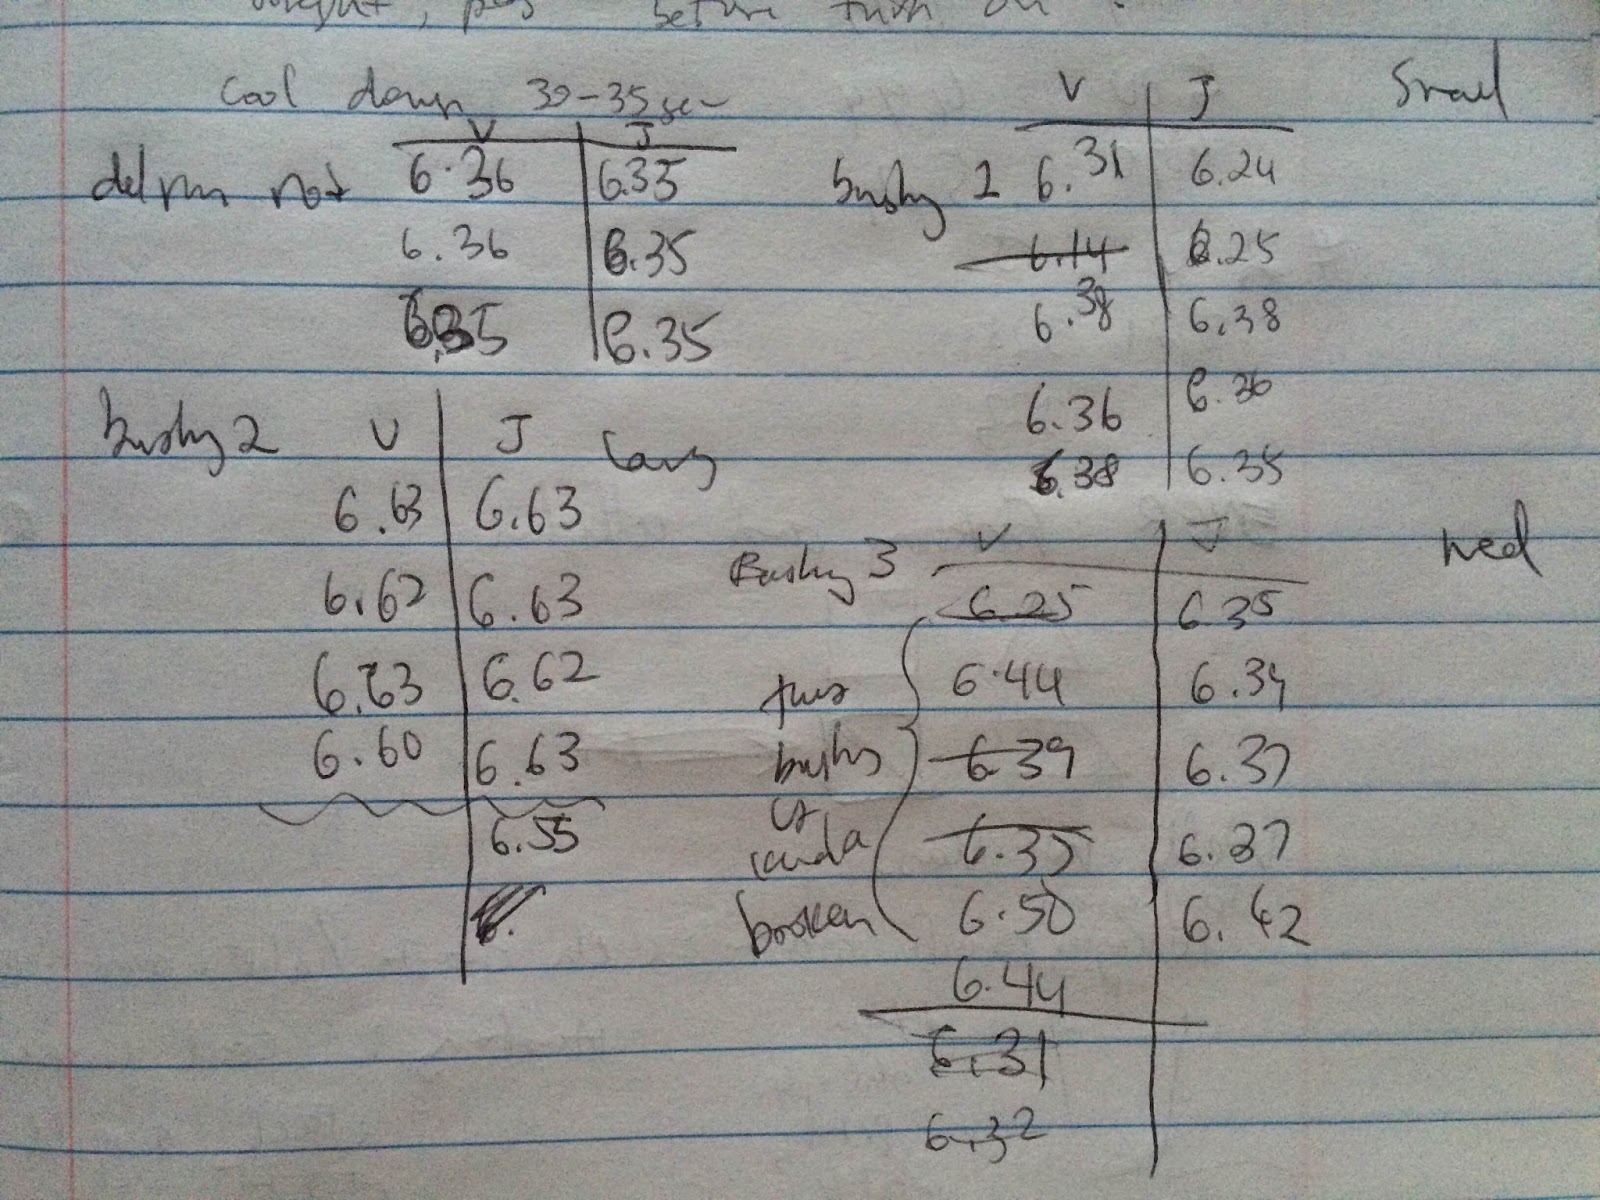 before turn on
cool down 30-35sec
V J
delrin rod 6.36 6.35
6.36 6.35
6.35 6.35
V J Small
bushy 1 6.31 6.24
6.14 6.25
6.38 6.38
6.36 6.36
6.38 6.35
bushy 2 V J Larg
6.63 6.63
6.62 6.63
6.63 6.62
6.60 6.63
6.55
6.
Bushy 3 V J med
6.25 6.35
6.44 6.34
bushy 6.39 6.37
6.35 6.37
broken 6.50 6.42
6.44
6.31
6.32